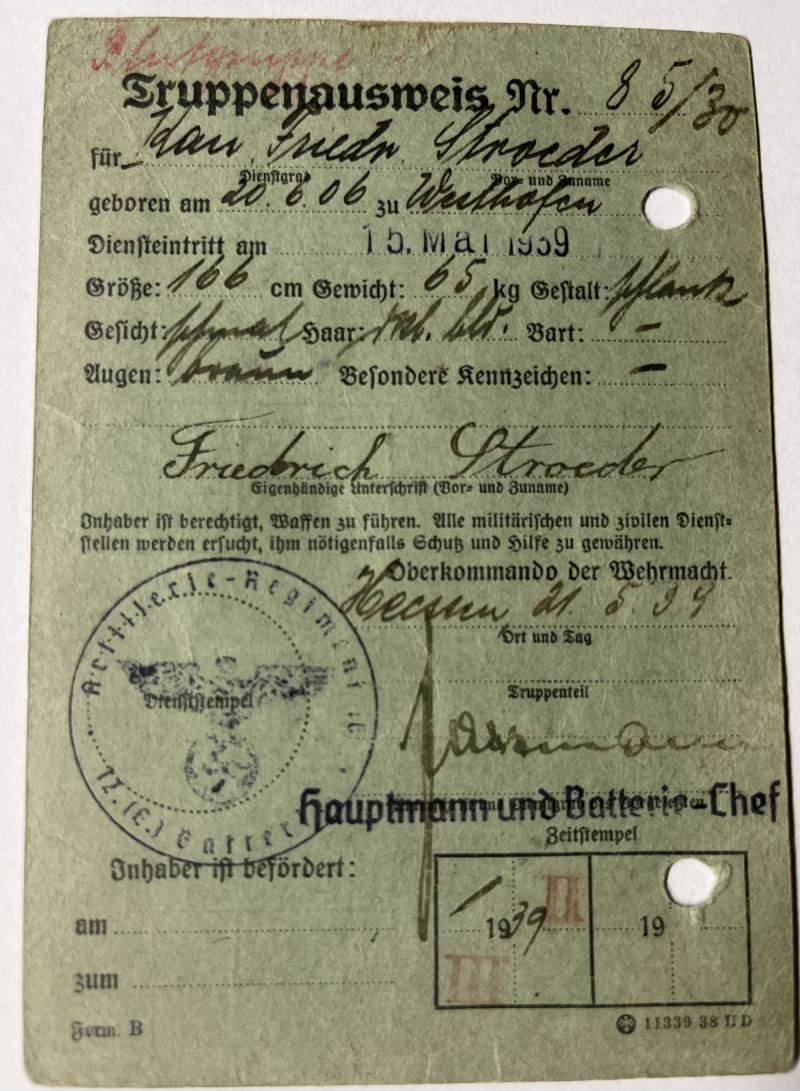 Blutgruppe
Truppenausweis Nr. 85/30
für Kan. Friedr. Stroeder
Dienstgrad Vor- und Zuname
geboren am 20.6.06 zu Westhofen
Diensteintritt am 15. Mai 1939
Größe: 166 cm Gewicht: 65 kg Gestalt: schlank
Gesicht: schmal Haar: dkl. bld. Bart: –
Augen: braun Besondere Kennzeichen: –
Friedrich Stroeder
Eigenhändige Unterschrift (Vor- und Zuname)
Inhaber ist berechtigt, Waffen zu führen. Alle militärischen und zivilen Dienst-
stellen werden ersucht, ihm nötigenfalls Schutz und Hilfe zu gewähren.
Oberkommando der Wehrmacht.
21.5.39
Ort und Tag
Artillerie-Regiment
Dienststempel
Truppenteil
Hauptmann und Batterie-Chef
Zeitstempel
Inhaber ist befördert:
am
1939 II 19
III
zum
Form. B
11339 38 II D